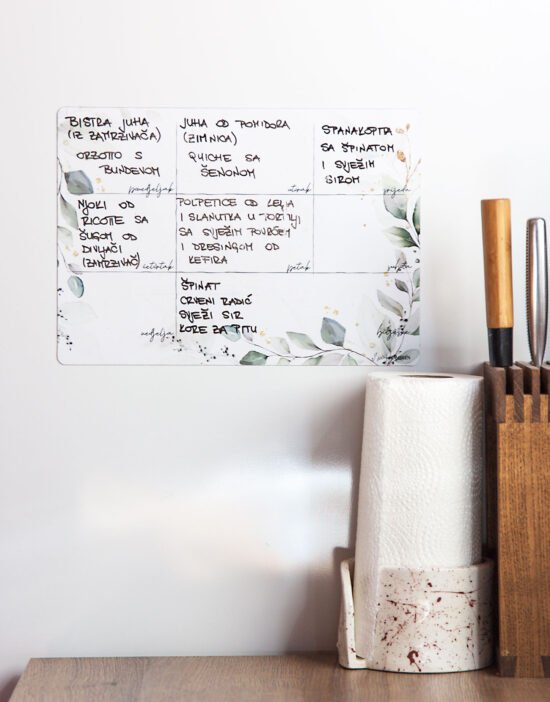 BISTRA JUHA
(IZ ZAMRZIVAČA)
ORZOTTO S
BUNDEVOM
ponedjeljak
JUHA OD POMIDORA
(ZIMNICA)
QUICHE SA
ŠENONOM
utorak
SPANAKOPITA
SA ŠPINATOM
I SVJEŽIM
SIROM
srijeda
NJOKI OD
RICOTTE SA
ŠUGOM OD
DIVLJAČI
(ZAMRZIVAČ)
četvrtak
POLPETICE OD
I SLANUTKA U TORTILJI
SA SVJEŽIM POVRĆEM
I DRESINGOM OD
KEFIRA
petak
subota
nedjelja
ŠPINAT
CRVENI RADIĆ
SVJEŽI SIR
KORE ZA PITU
bilješke